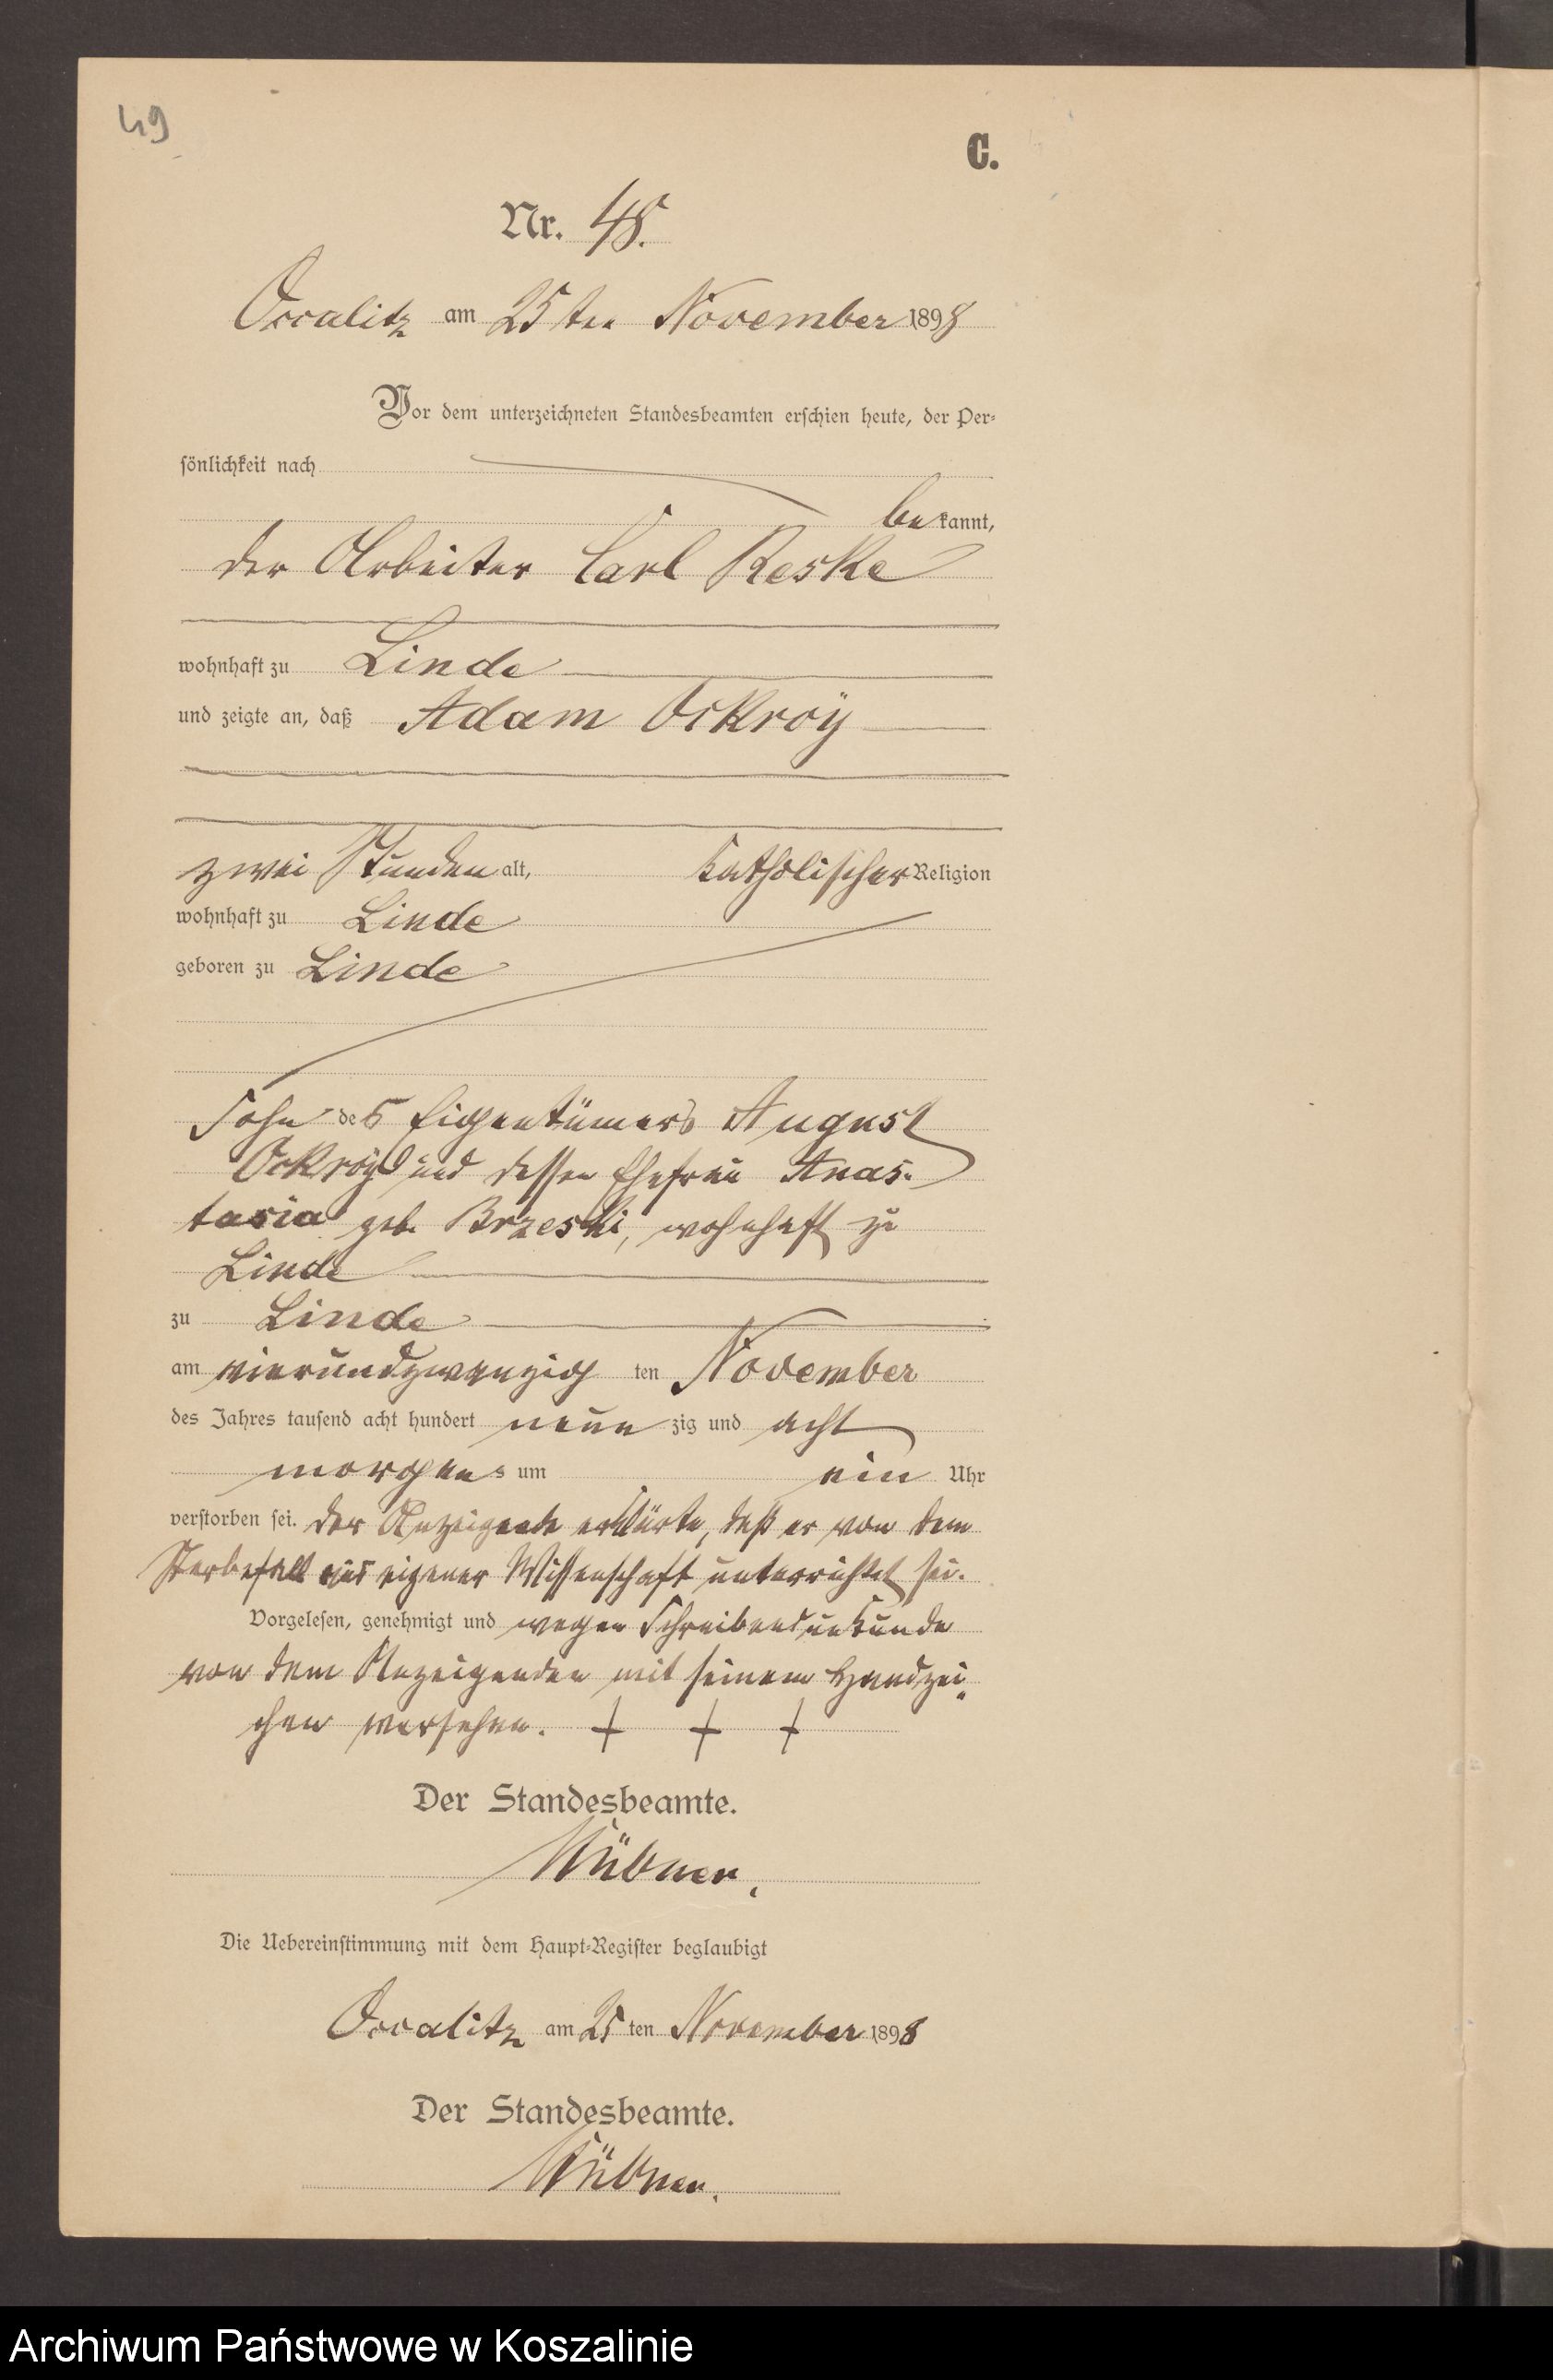 49
C.
Nr. 48.
Occalitz am 25ten November 1898
Vor dem unterzeichneten Standesbeamten erschien heute, der Per-
sönlichkeit nach
bekannt,
der Arbeiter Carl Reske
wohnhaft zu Linde
und zeigte an, daß Adam Ockroÿ
zwei Stunden alt, katholischer Religion
wohnhaft zu Linde
geboren zu Linde
Sohn des Eigentümers August
Ockroÿ und dessen Ehefrau Anas-
tasia geb. Brzeski, wohnhaft zu
Linde
zu Linde
am vierundzwanzig ten November
des Jahres tausend acht hundert neun zig und acht
morgens um ein Uhr
verstorben sei. Der Anzeigende erklärte, daß er von dem
Sterbefall aus eigener Wissenschaft unterrichtet sei.
Vorgelesen, genehmigt und wegen Schreibensunkunde
von dem Anzeigenden mit seinem Handzei-
chen versehen. + + +
Der Standesbeamte.
Die Uebereinstimmung mit dem Haupt-Register beglaubigt
Occalitz am 25 ten November 1898
Der Standesbeamte.
Archiwum Państwowe w Koszalinie